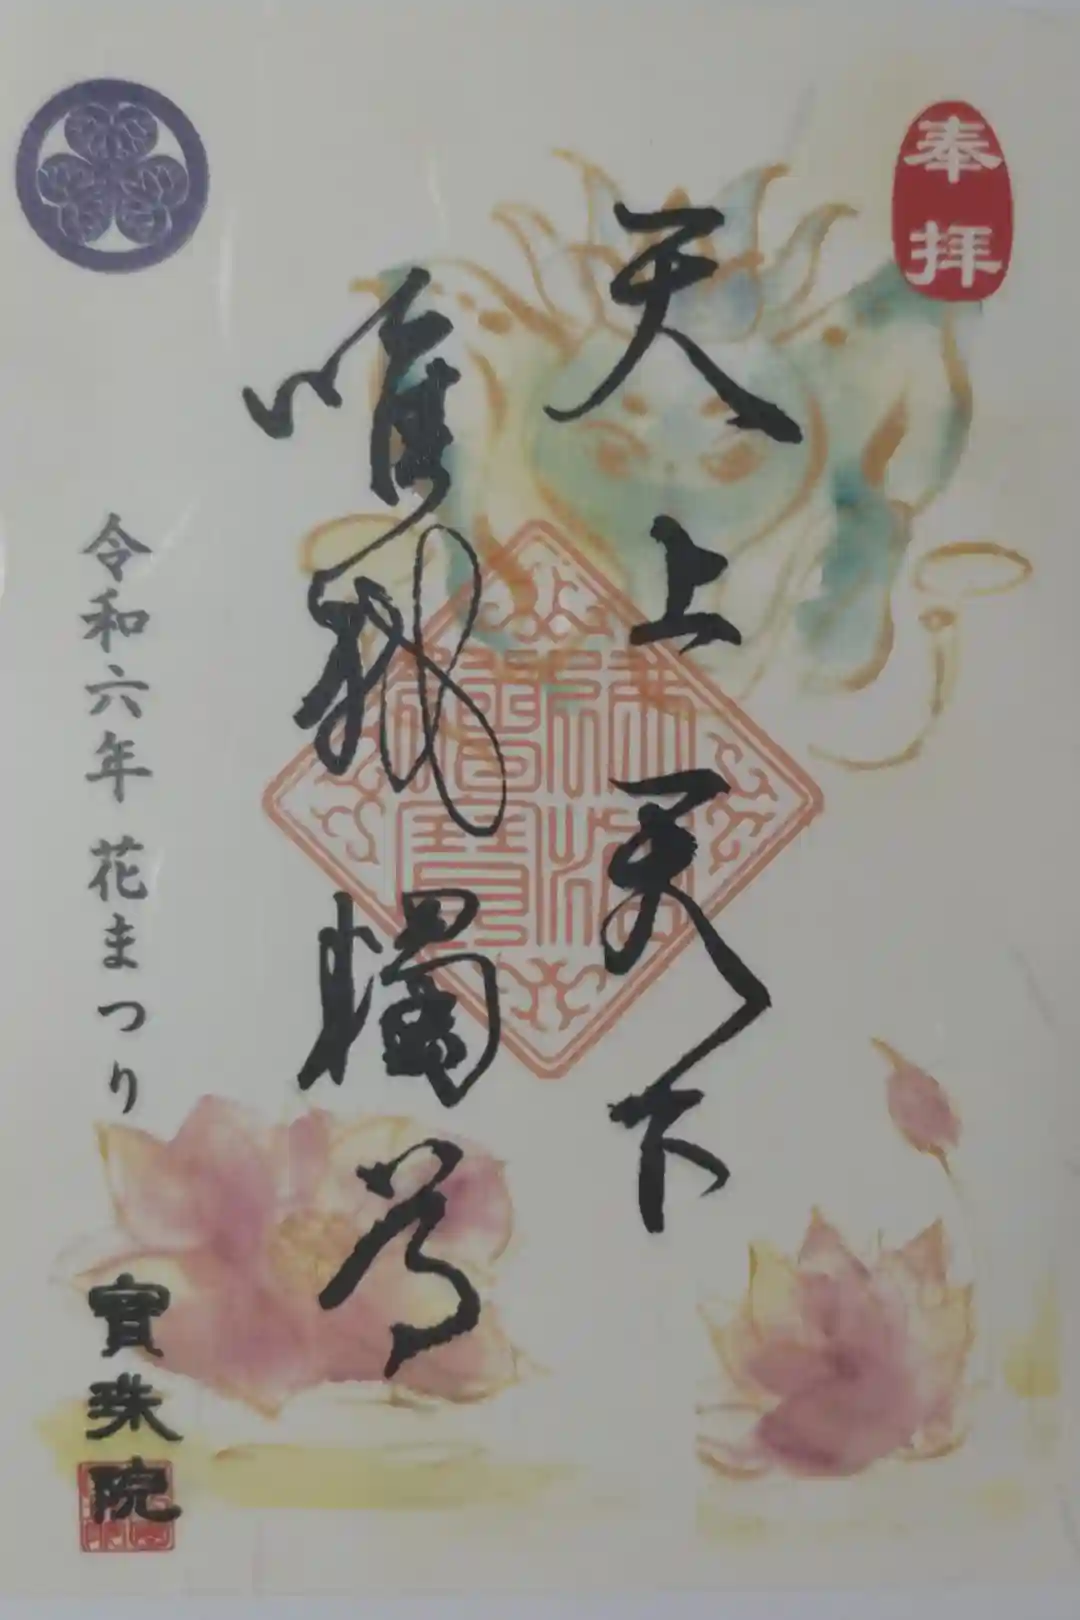 奉拝
天上天下
唯我独尊
令和六年 花まつり
寳珠院